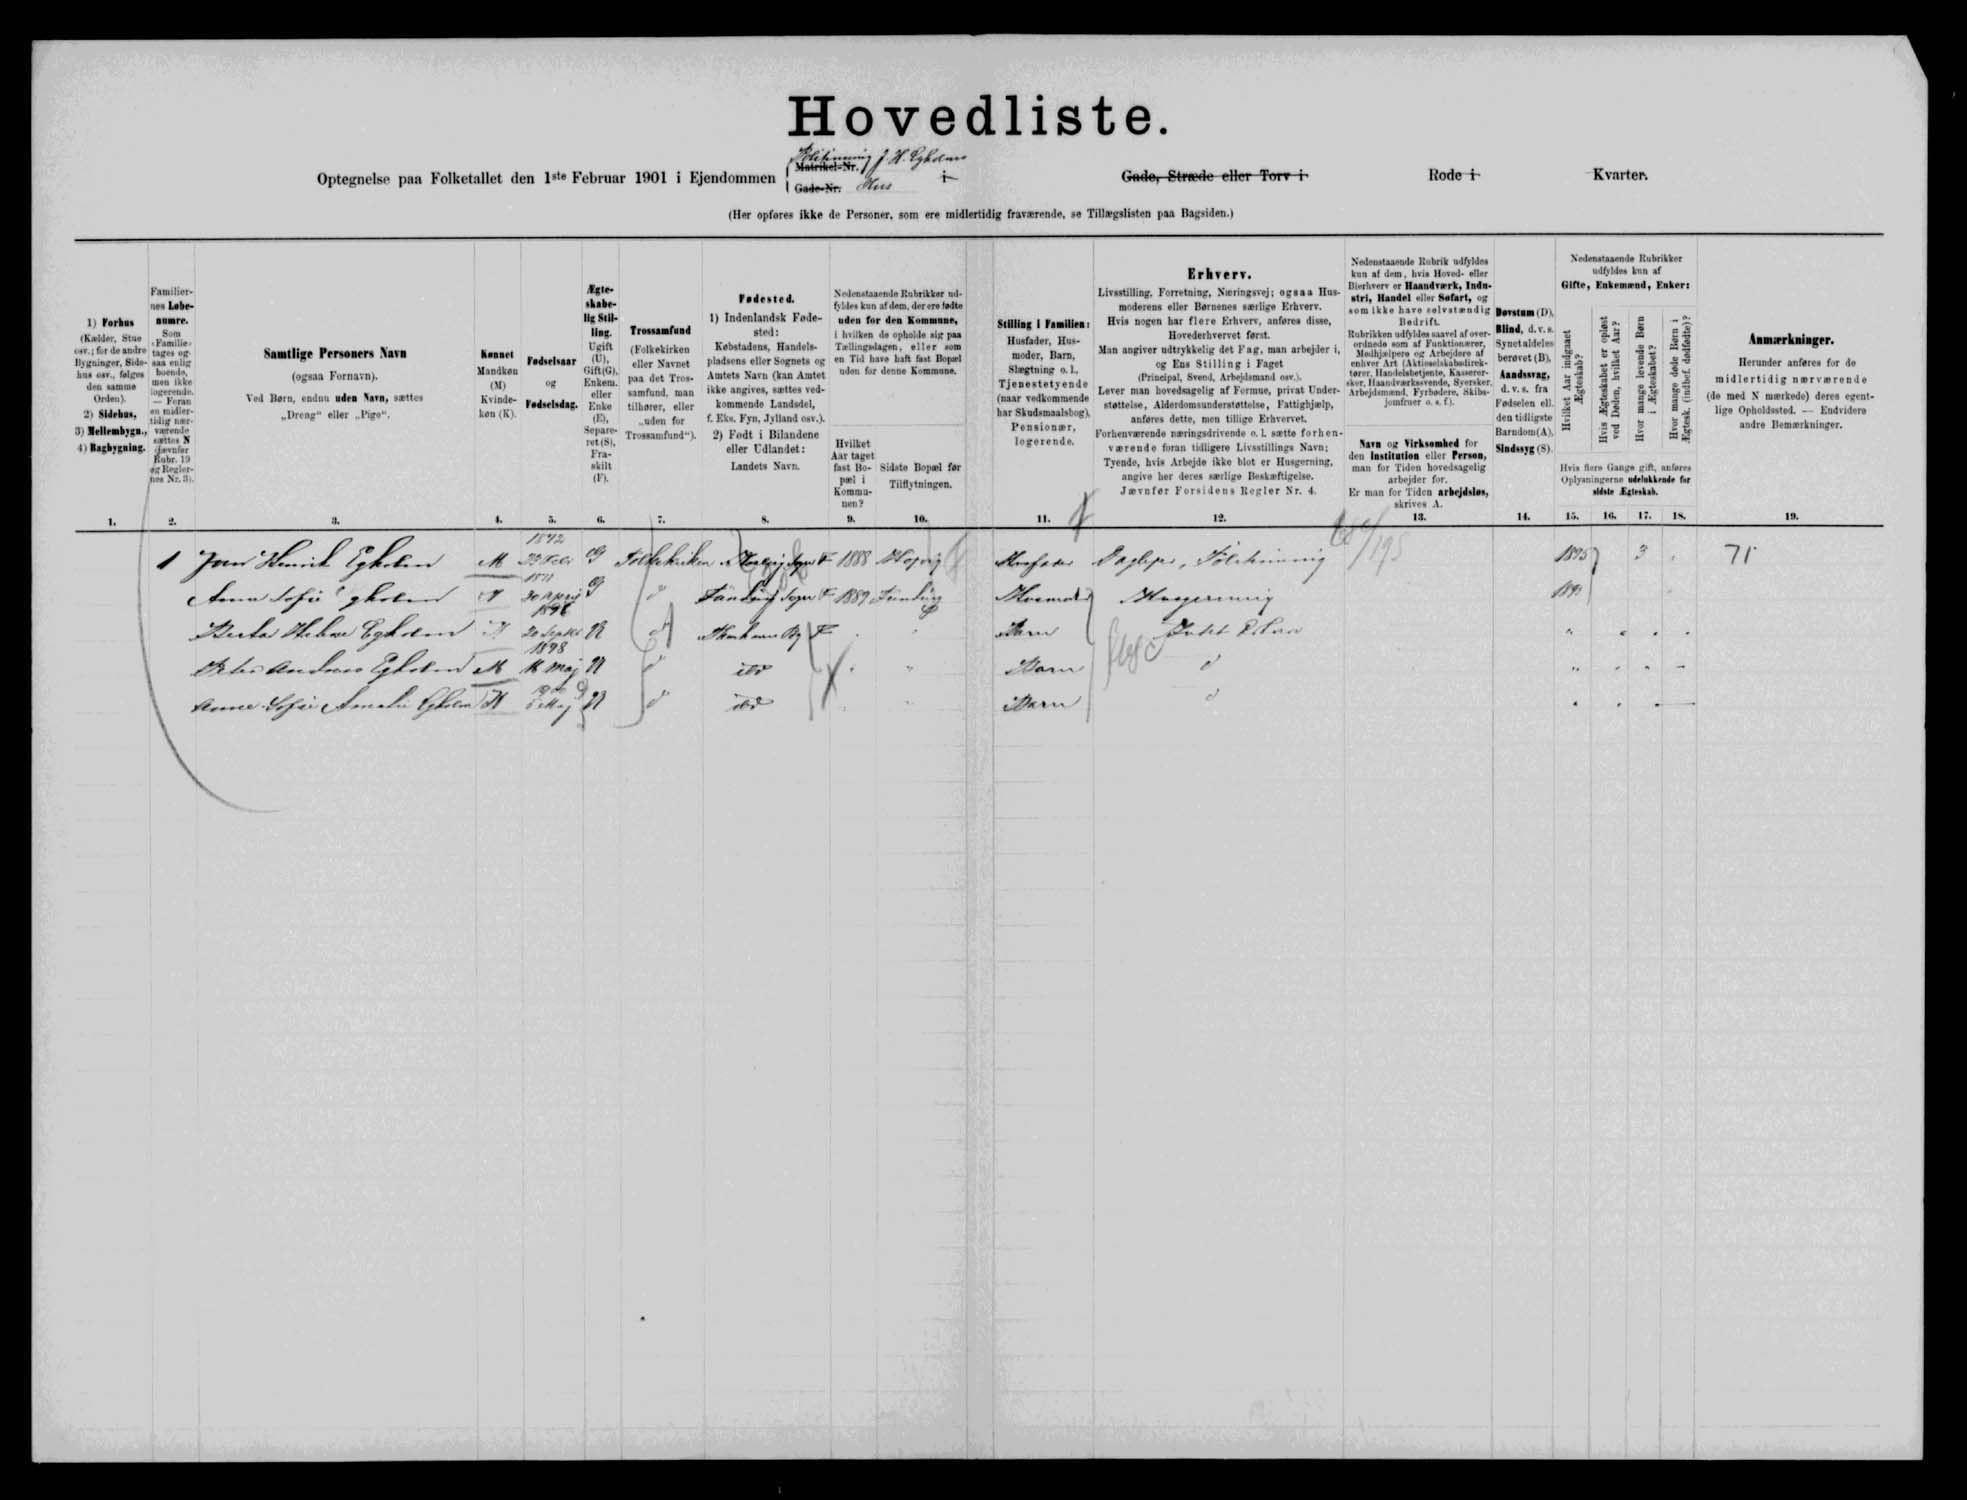 Hovedliste.
Optegnelse paa Folketallet den 1ste Februar 1901 i Ejendommen
J. H. Egholms
Matrikel-Nr.
Gade-Nr. Hus i
Gade, Stræde eller Torv i
Rode i
Kvarter.
(Her opføres ikke de Personer, som ere midlertidig fraværende, se Tillægslisten paa Bagsiden.)
1) Forhus
(Kælder, Stue
osv.; for de andre
Bygninger, Side-
hus osv., følges
den samme
Orden).
2) Sidehus,
3) Mellembygn.,
4) Bagbygning.
1.
Familier-
nes Løbe-
numre.
Som
»Familie«
tages og-
saa enlig
boende,
men ikke
logerende.
— Foran
en midler-
tidig nær-
værende
sættes N
(jævnfør
Rubr. 19
og Regler-
nes Nr. 3).
2.
Samtlige Personers Navn
(ogsaa Fornavn).
Ved Børn, endnu uden Navn, sættes
„Dreng“ eller „Pige“.
3.
Kønnet
Mandkøn
(M)
Kvinde-
køn (K).
4.
Fødselsaar
og
Fødselsdag.
5.
Ægte-
skabe-
lig Stil-
ling.
Ugift
(U),
Gift(G),
Enkem.
eller
Enke
(E),
Separe-
ret (S),
Fra-
skilt
(F).
6.
Trossamfund
(Folkekirken
eller Navnet
paa det Tros-
samfund, man
tilhører, eller
„uden for
Trossamfund“).
7.
Fødested.
1) Indenlandsk Føde-
sted:
Købstadens, Handels-
pladsens eller Sognets og
Amtets Navn (kan Amtet
ikke angives, sættes ved-
kommende Landsdel,
f. Eks. Fyn, Jylland osv.).
2) Født i Bilandene
eller Udlandet:
Landets Navn.
8.
Nedenstaaende Rubrikker ud-
fyldes kun af dem, der ere fødte
uden for den Kommune,
i hvilken de opholde sig paa
Tællingsdagen, eller som
en Tid have haft fast Bopæl
uden for denne Kommune.
Hvilket
Aar taget
fast Bo-
pæl i
Kommu-
nen?
9.
Sidste Bopæl før
Tilflytningen.
10.
Stilling i Familien:
Husfader, Hus-
moder, Barn,
Slægtning o. l.,
Tjenestetyende
(naar vedkommende
har Skudsmaalsbog),
Pensionær,
logerende.
11.
Erhverv.
Livsstilling, Forretning, Næringsvej; ogsaa Hus-
moderens eller Børnenes særlige Erhverv.
Hvis nogen har flere Erhverv, anføres disse,
Hovederhvervet først.
Man angiver udtrykkelig det Fag, man arbejder i,
og Ens Stilling i Faget
(Principal, Svend, Arbejdsmand osv.).
Lever man hovedsagelig af Formue, privat Under-
støttelse, Alderdomsunderstøttelse, Fattighjælp,
anføres dette, men tillige Erhvervet.
Forhenværende næringsdrivende o. l. sætte forhen-
værende foran tidligere Livsstillings Navn;
Tyende, hvis Arbejde ikke blot er Husgerning,
angive her deres særlige Beskæftigelse.
Jævnfør Forsidens Regler Nr. 4.
12.
Nedenstaaende Rubrik udfyldes
kun af dem, hvis Hoved- eller
Bierhverv er Haandværk, Indu-
stri, Handel eller Søfart, og
som ikke have selvstændig
Bedrift.
Rubrikken udfyldes saavel af over-
ordnede som af Funktionærer,
Medhjælpere og Arbejdere af
enhver Art (Aktieselskabsdirek-
tører, Handelsbetjente, Kasserer-
sker, Haandværkssvende, Syersker,
Arbejdsmænd, Fyrbødere, Skibs-
jomfruer o. s. f.).
Navn og Virksomhed for
den Institution eller Person,
man for Tiden hovedsagelig
arbejder for.
Er man for Tiden arbejdsløs,
skrives A.
13.
Døvstum (D),
Blind, d. v. s.
Synet aldeles
berøvet (B),
Aandssvag,
d. v. s. fra
Fødselen ell.
den tidligste
Barndom(A),
Sindssyg (S).
14.
Nedenstaaende Rubrikker
udfyldes kun af
Gifte, Enkemænd, Enker:
Hvilket Aar indgaaet
Ægteskab?
Hvis Ægteskabet er opløst
ved Døden, hvilket Aar?
Hvor mange levende Børn
i Ægteskabet?
Hvor mange døde Børn i
Ægtesk. (indbef. dødfødte)?
Hvis flere Gange gift, anføres
Oplysningerne udelukkende for
sidste Ægteskab.
15. 16. 17. 18.
Anmærkninger.
Herunder anføres for de
midlertidig nærværende
(de med N mærkede) deres egent-
lige Opholdssted. — Endvidere
andre Bemærkninger.
19.
1 Henrik Egholm M 1872 23 Feb G Folkekirken Sogn F 1888 Husfader Daglejer, 1895 3 71
Anna Sofie Egholm K 1871 G d Sogn F 1889 Husmoder Husgerning
Egholm K 20 Septbr U d F Barn
Andreas Egholm M 1898 16 Maj U d Barn d
Anne Sofie Amalie Egholm K 1900 Maj U d Barn d